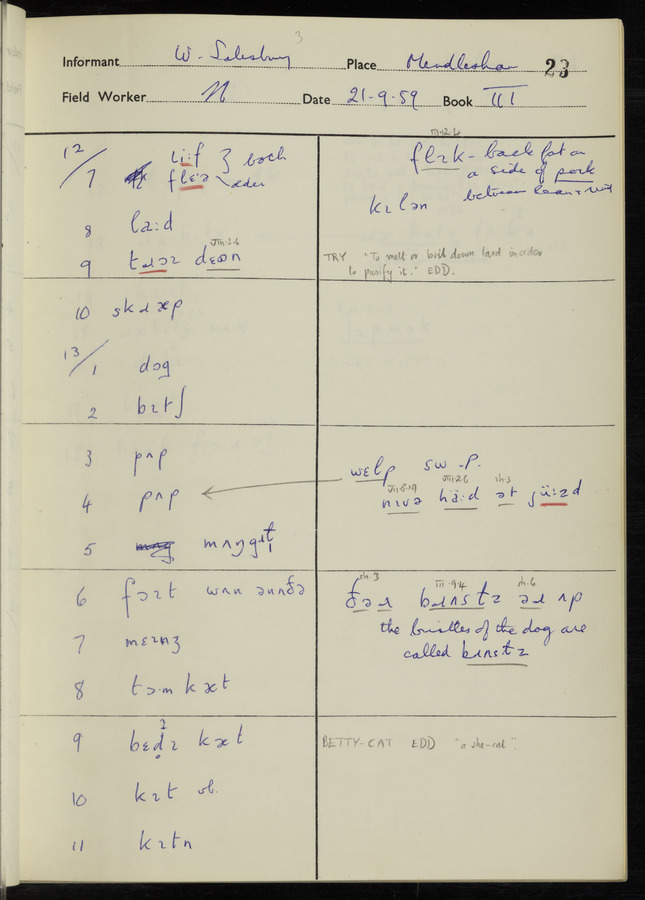 3
Informant W. Salesbury Place Mendlesham 23
Field Worker N Date 21-9-59 Book III
12/
7 li:f } both
flɛə older
8 la:d
9
10 skɹæp
13/
1 dɒg
2 bɪtʃ
3 pʌp
4 pʌp
5 mʌŋgɹ̩ɪl
6 fɔɪt wʌn ənʌðə
7
8 tɒm kæt
9 bɛdɪ kæt
10 kɪt vb.
11 kɪtn
III-12-6
flɪk - back fat on
a side of pork
between loin & rind
kɪlən
TRY "To melt or boil down lard in order
to purify it." EDD.
wɛlp sw -p.
VIII-2-6
nɪvə hä:d ət jü:zd
the bristles of the dog are
called bɹʌstɪz
BETTY-CAT EDD "a she-cat".